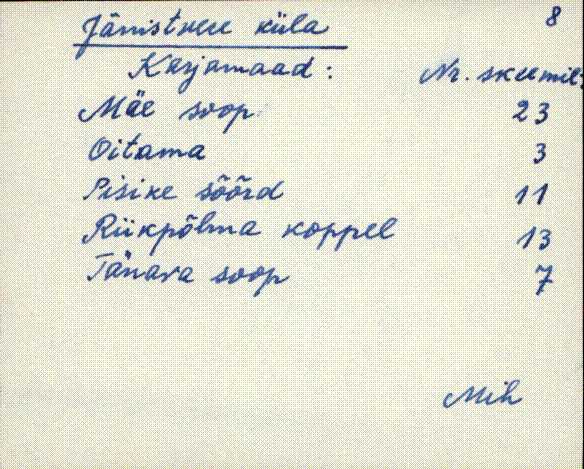 8
Jänistvere küla
Karjamaad: Nr. skeemil:
Mäe soop 23
Oitama 3
Pisike sõõrd 11
Riikpõlma koppel 13
Tänava soop 7
Mih